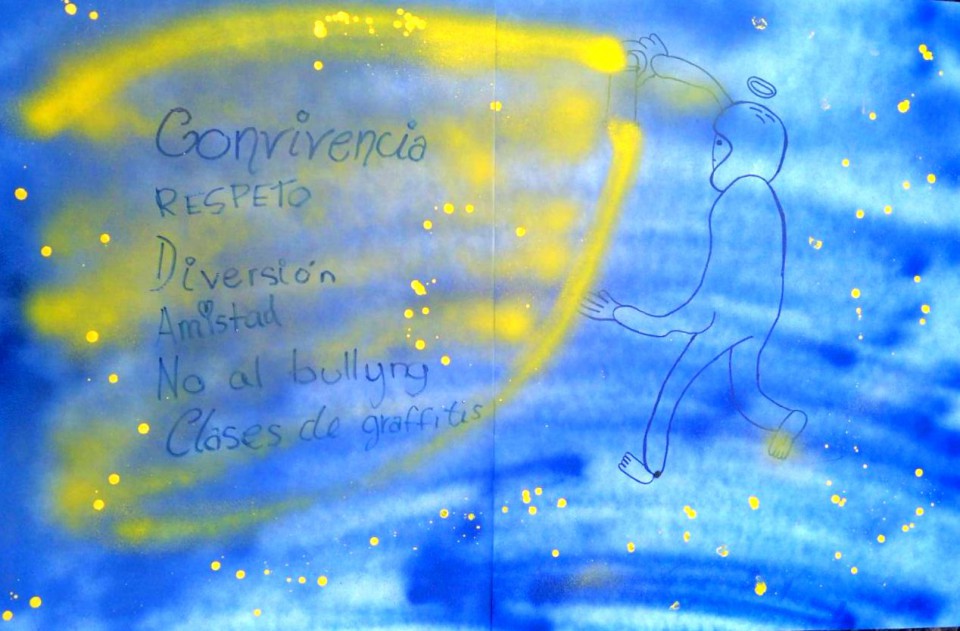 Convivencia
RESPETO
Diversión
Amistad
No al bullyng
Clases de graffitis